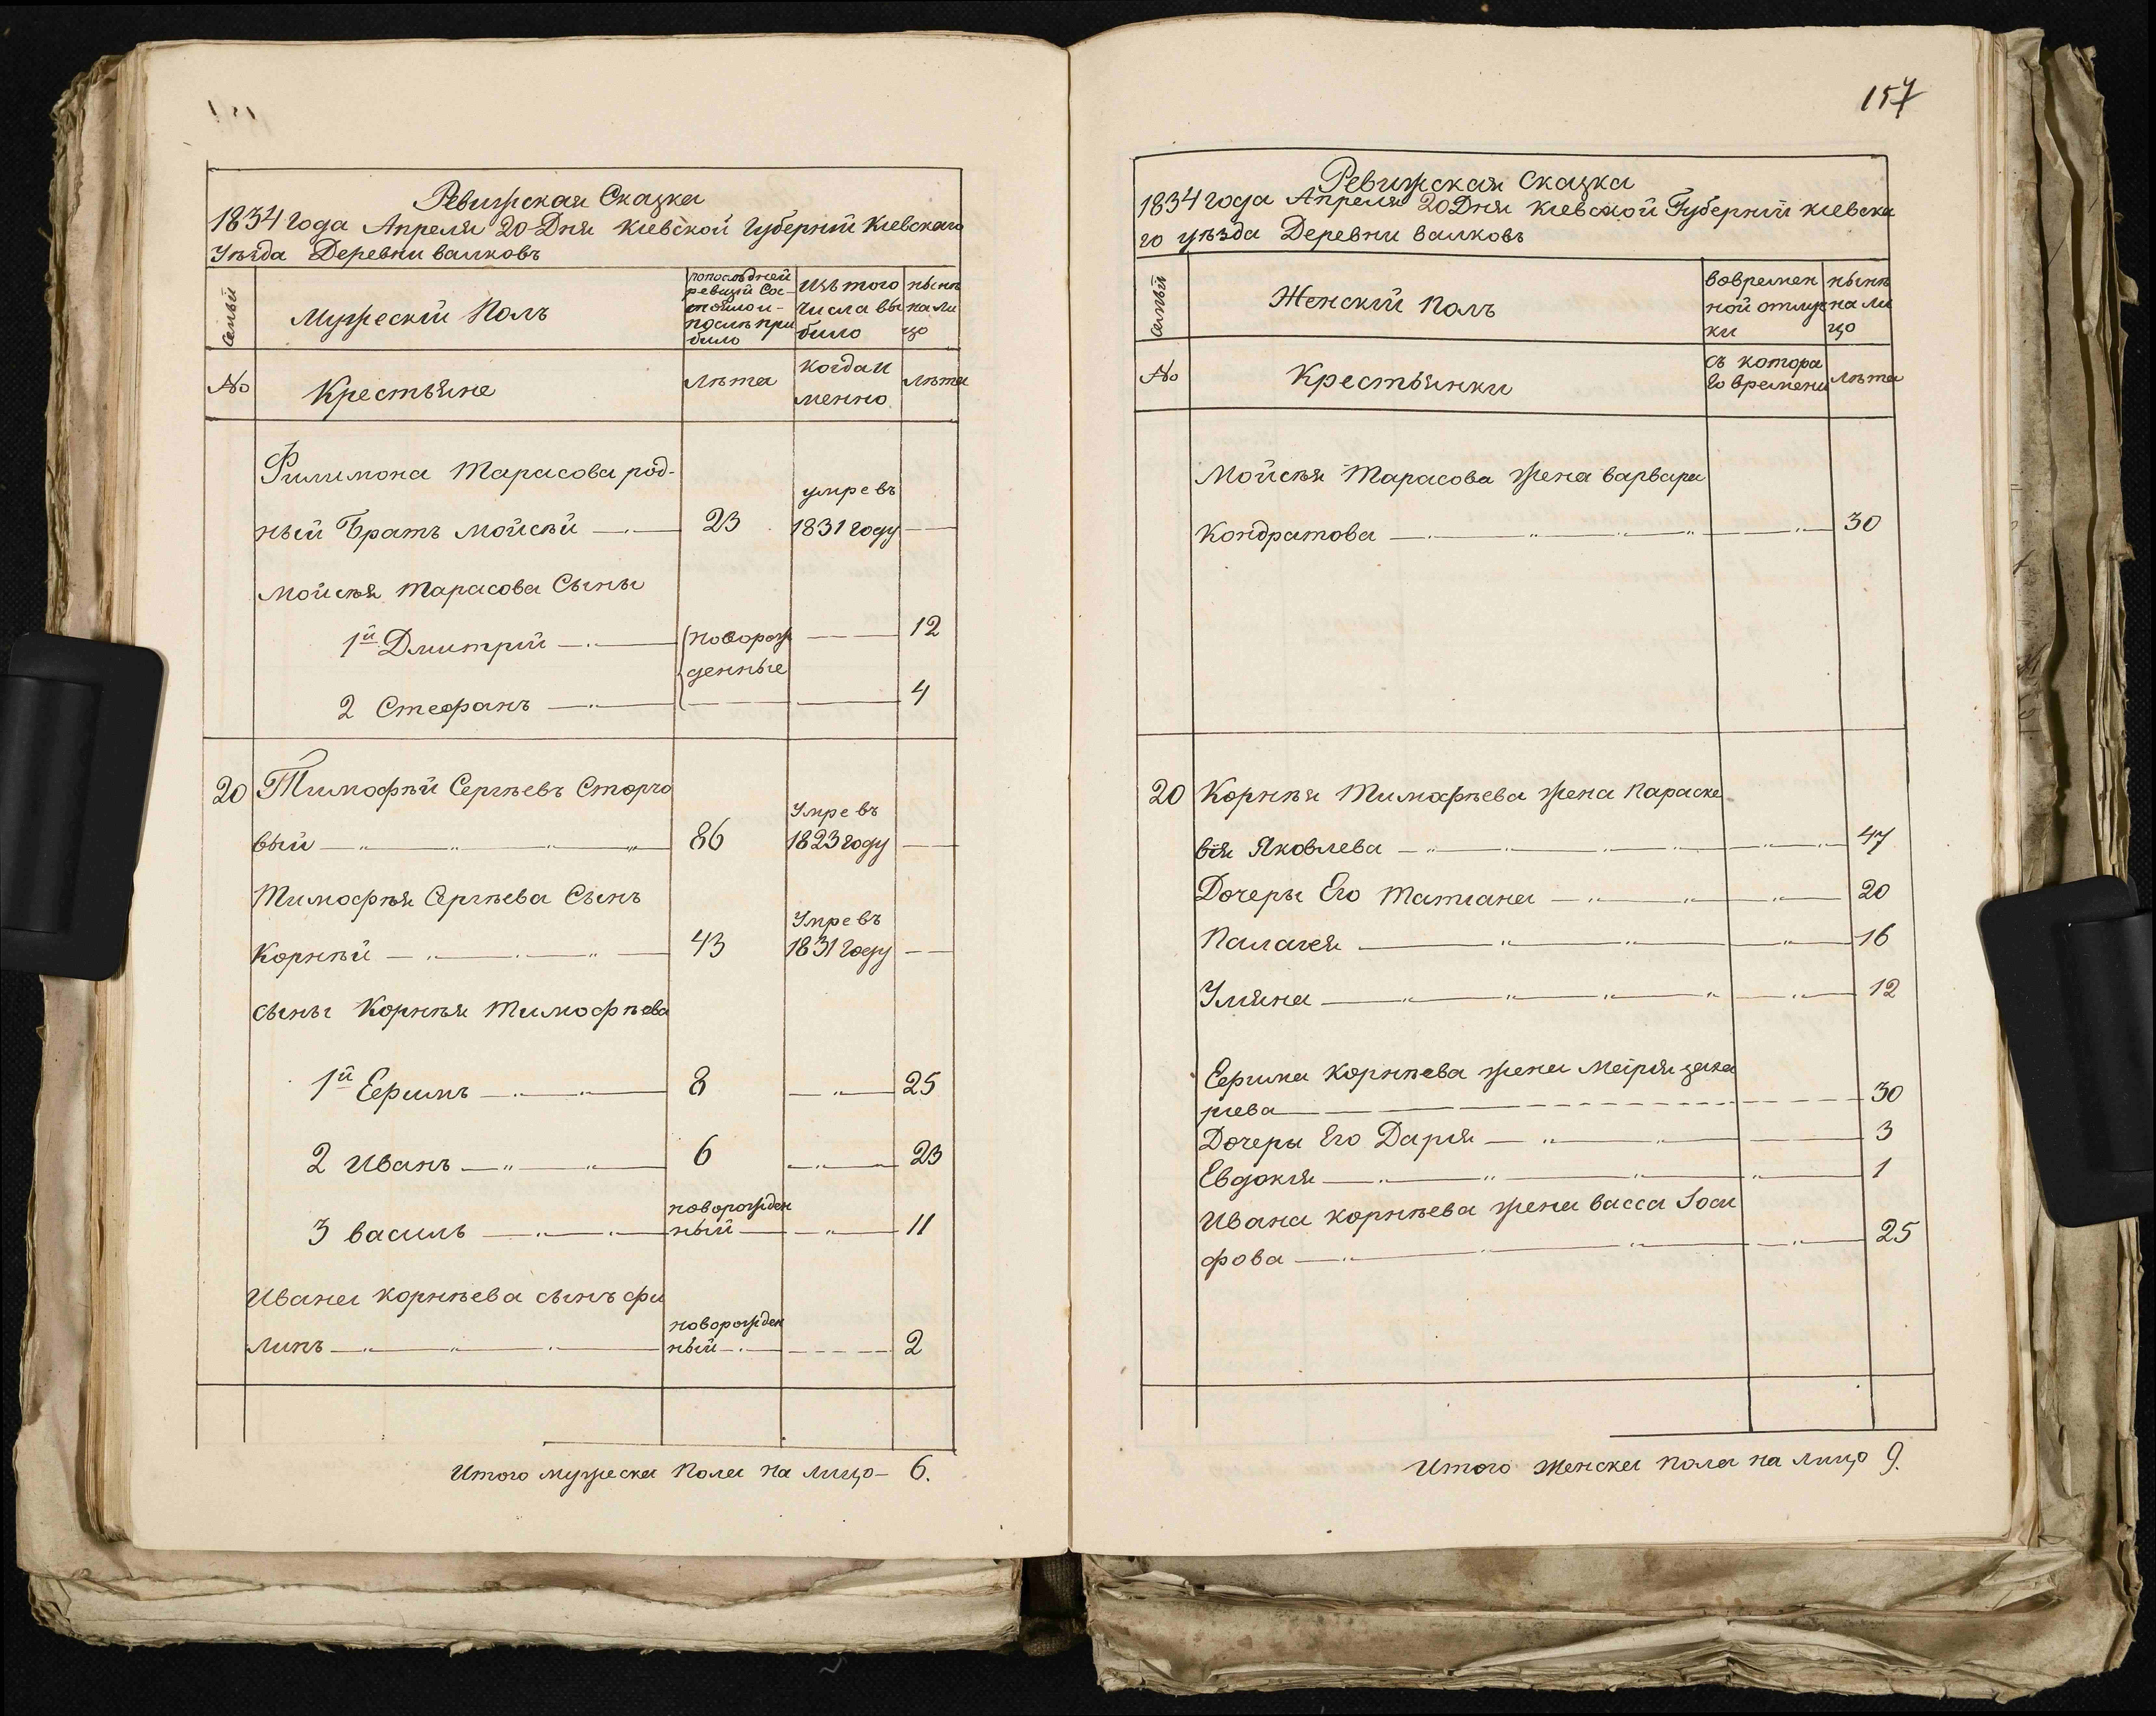 Ревижская Сказка
1834 года Апреля 20 Дня Кіевской Губерніи Кіевскаго
Уѣзда Деревни Валковъ
Семьи
Мужескій Полъ
попослѣдней
ревизіи Сос-
тояло и-
послѣ при
было
Изъ того
Числа вы
было
нынѣ
на ли
цо
No
Крестьяне
лѣта
когда и
менно
лѣта
Филимона Тарасова род-
умре въ
ный Братъ Мойсѣй 23 1831 году
Мойсѣя Тарасова Сыны
1й Дмитрій новорож 12
денные
2 Стефанъ 4
20 Тимофѣй Сергѣевъ Сторчо
Умре въ
вый 86 1823 году
Тимофѣя Сергѣева Сынъ
Умре въ
Корнѣй 43 1831 году
сыны Корнѣя Тимофѣева
1й Ефимъ 8 25
2 Иванъ 6 23
новорожден
3 Василь ный 11
Ивана Корнѣева сынъ Фи
новорожден
липъ ный 2
Итого мужеска Пола на лицо 6.
157
Ревижская Сказка
1834 года Апреля 20 Дня Кіевской Губерніи Кіевска
го уѣзда Деревни Валковъ
Семьи
Женскій Полъ
вовремен
ной отлуч
ки
нынѣ
на ли
цо
No
Крестьянки
съ котора
го времени
лѣта
Мойсѣя Тарасова жена Варвара
Кондратова 30
20 Корнѣя Тимофѣева жена Параске
вія Яковлева 47
Дочеры Его Татіана 20
Палагея 16
Уляна 12
Ефима Корнѣева жена Марія Заха
ріева 30
Дочеры Его Дарія 3
Евдокія 1
Ивана Корнѣева жена Васса Іоси
фова 25
Итого женска пола на лицо 9.